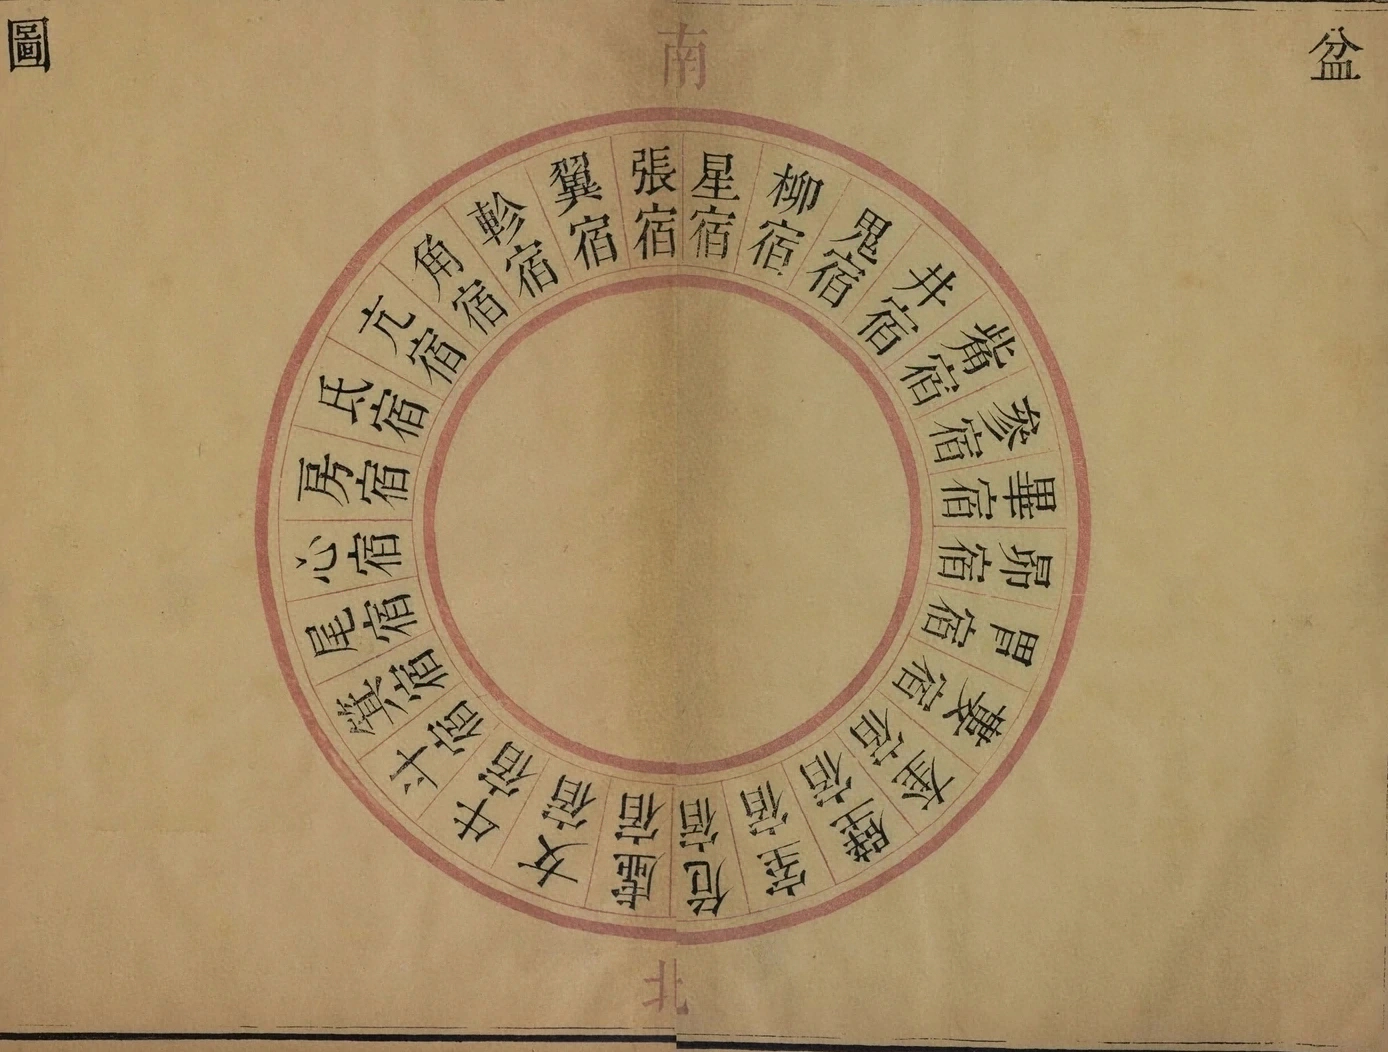 盆
圖
南
角宿
亢宿
氐宿
房宿
心宿
尾宿
箕宿
斗宿
牛宿
女宿
虛宿
危宿
室宿
壁宿
奎宿
婁宿
胃宿
昴宿
畢宿
參宿
觜宿
井宿
鬼宿
柳宿
星宿
張宿
翼宿
軫宿
北